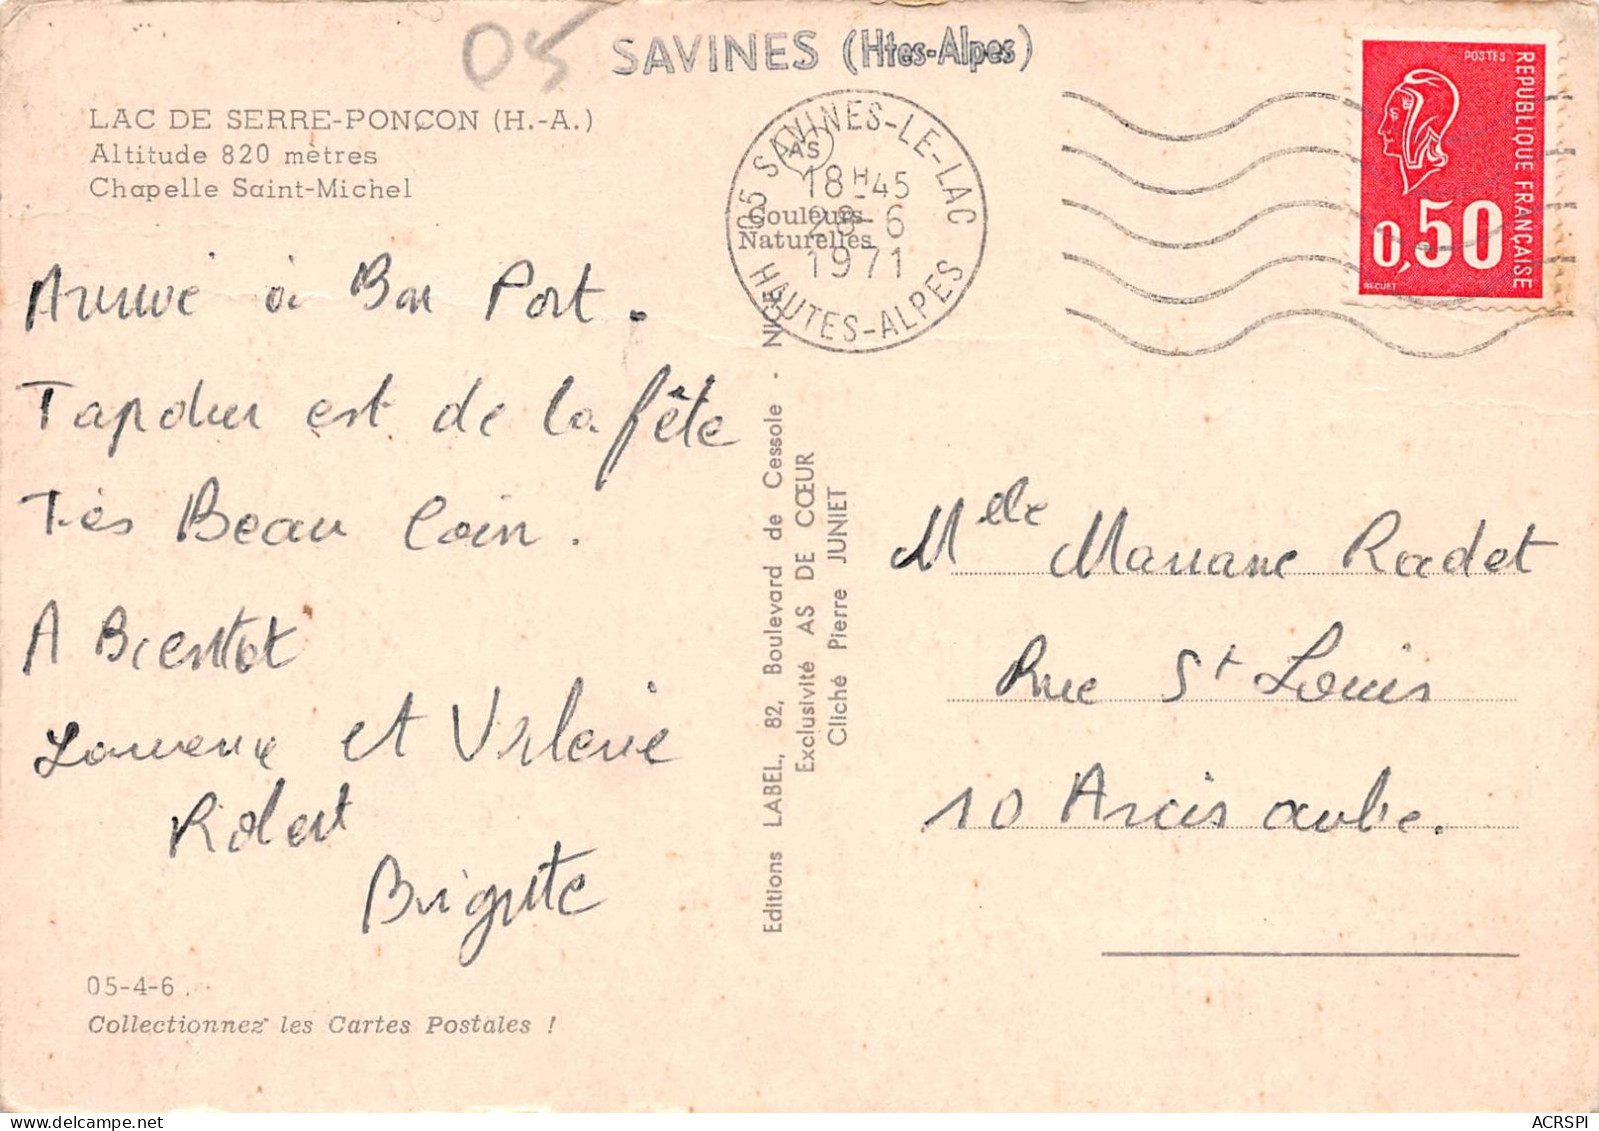 05
SAVINES (Htes-Alpes)
LAC DE SERRE-PONÇON (H.-A.)
Altitude 820 mètres
Chapelle Saint-Michel
05 SAVINES-LE-LAC
18H45
28-6
1971
HAUTES-ALPES
AS
Couleurs
Naturelles
POSTES
REPUBLIQUE FRANÇAISE
0,50
BEQUET
Arrivé à Bon Port.
est de la fête
Très Beau Coin.
A Bientot
et Valerie
Robert
Brigitte
05-4-6
Collectionnez les Cartes Postales !
Editions LABEL, 82, Boulevard de Cessole - NICE
Exclusivité AS DE CŒUR
Cliché Pierre JUNIET
Melle Mariane Radet
Rue St Louis
10 Arcis aube.
ACRSPI